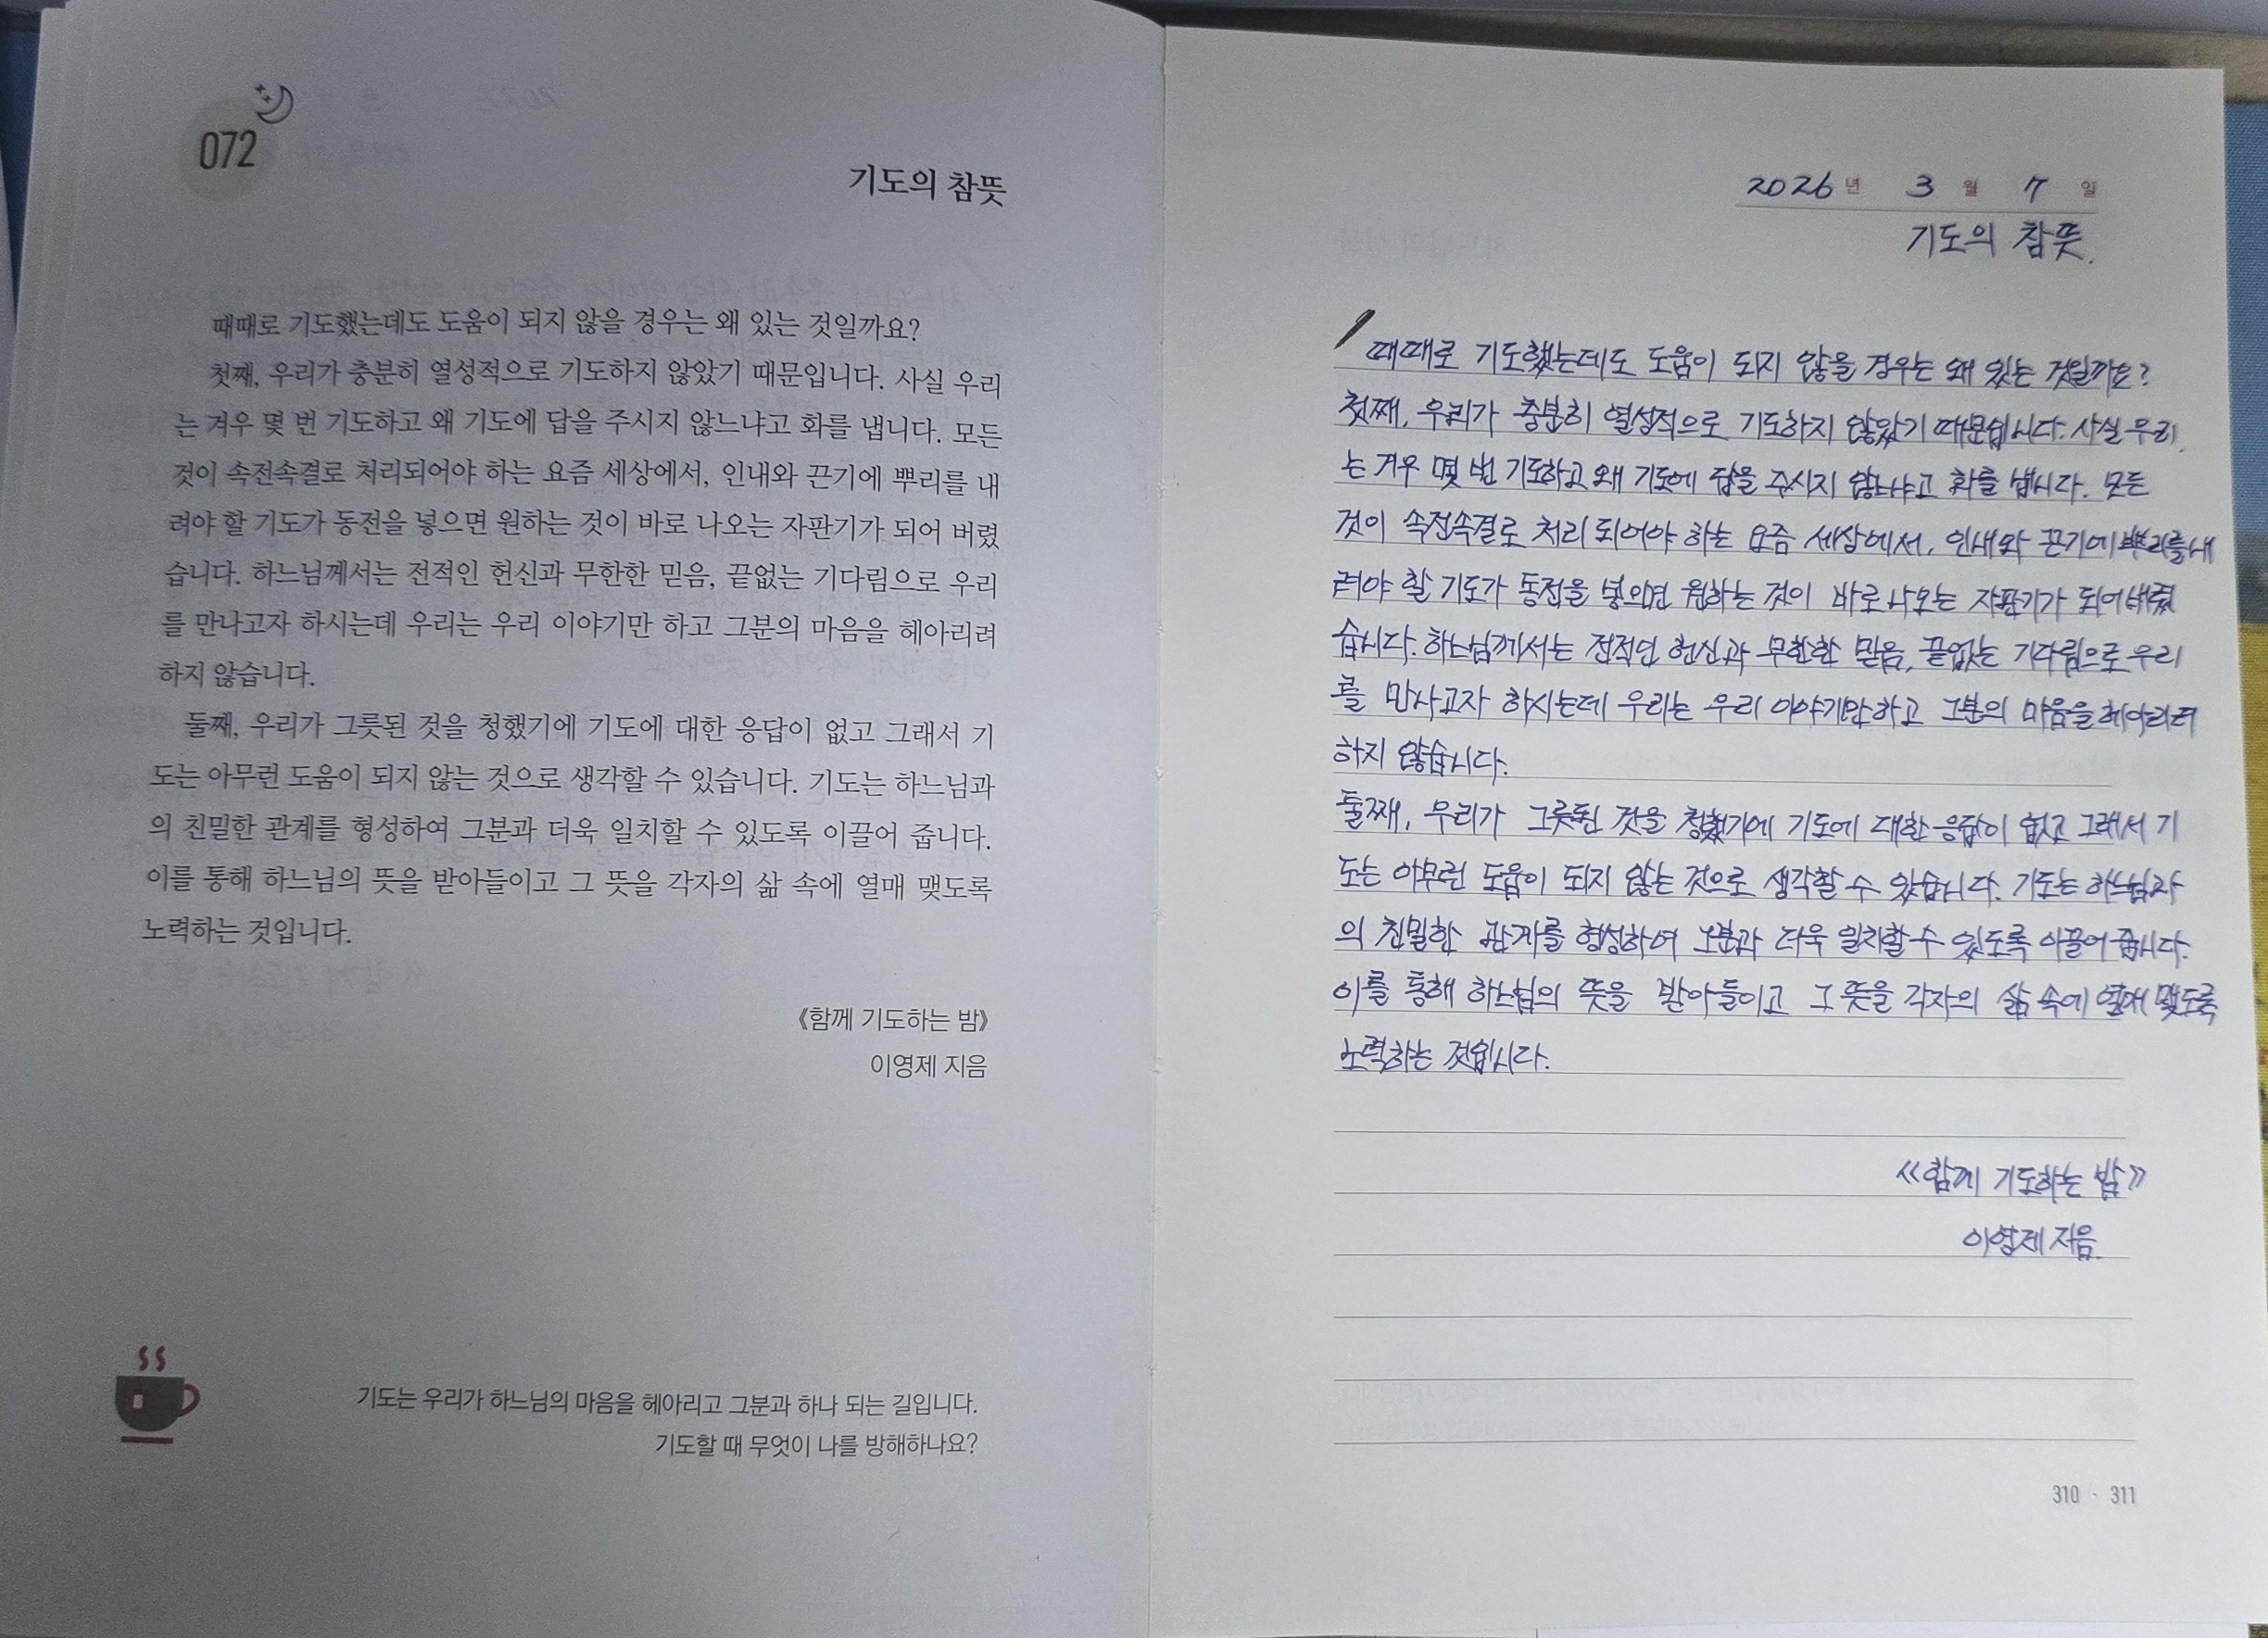 072
기도의 참뜻
때때로 기도했는데도 도움이 되지 않을 경우는 왜 있는 것일까요?
첫째, 우리가 충분히 열성적으로 기도하지 않았기 때문입니다. 사실 우리
는 겨우 몇 번 기도하고 왜 기도에 답을 주시지 않느냐고 화를 냅니다. 모든
것이 속전속결로 처리되어야 하는 요즘 세상에서, 인내와 끈기에 뿌리를 내
려야 할 기도가 동전을 넣으면 원하는 것이 바로 나오는 자판기가 되어 버렸
습니다. 하느님께서는 전적인 헌신과 무한한 믿음, 끝없는 기다림으로 우리
를 만나고자 하시는데 우리는 우리 이야기만 하고 그분의 마음을 헤아리려
하지 않습니다.
둘째, 우리가 그릇된 것을 청했기에 기도에 대한 응답이 없고 그래서 기
도는 아무런 도움이 되지 않는 것으로 생각할 수 있습니다. 기도는 하느님과
의 친밀한 관계를 형성하여 그분과 더욱 일치할 수 있도록 이끌어 줍니다.
이를 통해 하느님의 뜻을 받아들이고 그 뜻을 각자의 삶 속에 열매 맺도록
노력하는 것입니다.
《함께 기도하는 밤》
이영제 지음
기도는 우리가 하느님의 마음을 헤아리고 그분과 하나 되는 길입니다.
기도할 때 무엇이 나를 방해하나요?
2026년 3월 7일
기도의 참뜻.
때때로 기도했는데도 도움이 되지 않을 경우는 왜 있는 것일까요?
첫째, 우리가 충분히 열성적으로 기도하지 않았기 때문입니다. 사실 우리
는 겨우 몇 번 기도하고 왜 기도에 답을 주시지 않느냐고 화를 냅니다. 모든
것이 속전속결로 처리되어야 하는 요즘 세상에서, 인내와 끈기에 뿌리를 내
려야 할 기도가 동전을 넣으면 원하는 것이 바로 나오는 자판기가 되어 버렸
습니다. 하느님께서는 전적인 헌신과 무한한 믿음, 끝없는 기다림으로 우리
를 만나고자 하시는데 우리는 우리 이야기만 하고 그분의 마음을 헤아리려
하지 않습니다.
둘째, 우리가 그릇된 것을 청했기에 기도에 대한 응답이 없고 그래서 기
도는 아무런 도움이 되지 않는 것으로 생각할 수 있습니다. 기도는 하느님과
의 친밀한 관계를 형성하여 그분과 더욱 일치할 수 있도록 이끌어 줍니다.
이를 통해 하느님의 뜻을 받아들이고 그 뜻을 각자의 삶 속에 열매 맺도록
노력하는 것입니다.
《함께 기도하는 밤》
이영제 지음
310 · 311